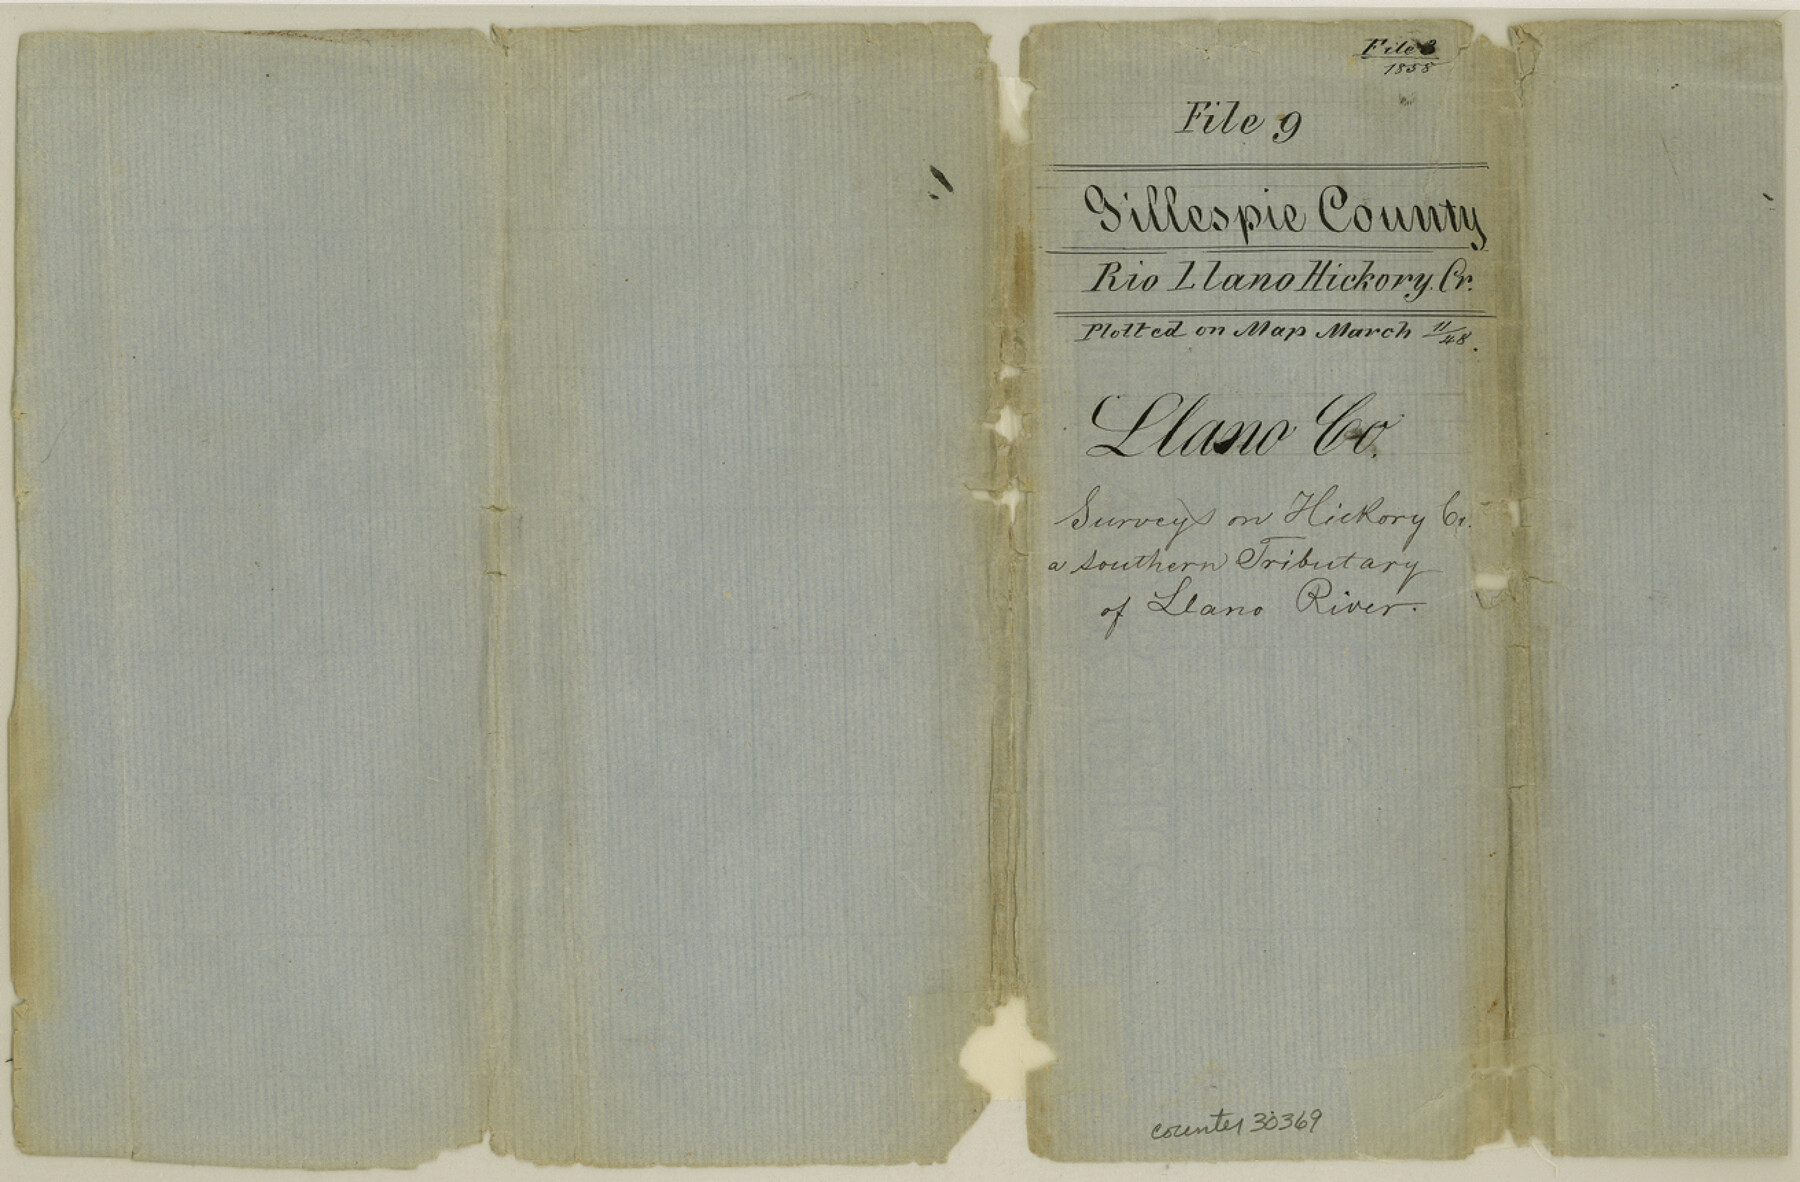 File 3
1858
File 9
Gillespie County
Rio Llano Hickory. Cr.
Plotted on Map March 11/48.
Llano Co.
Surveys on Hickory Cr.
a southern Tributary
of Llano River.
counter 30369